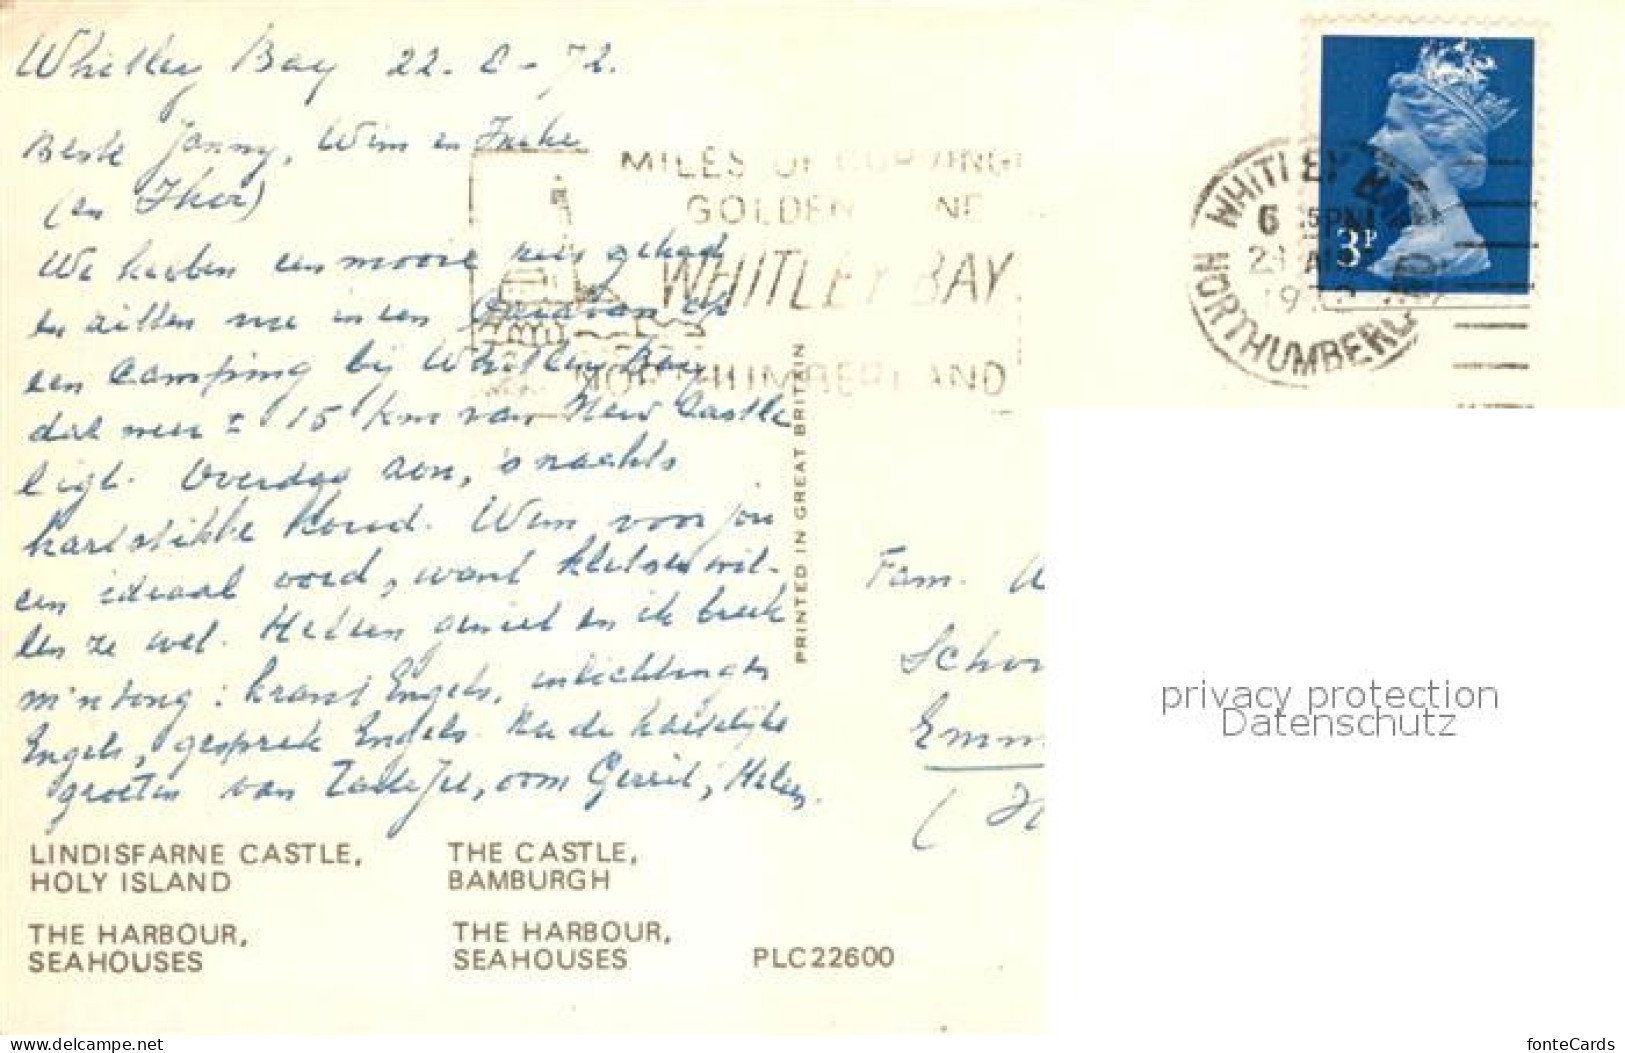 Whitley Bay 22-8-72.
Beste Janny, Wim en Ineke
(en Thor)
We hebben een mooie reis gehad
en zitten nu in een Caravan op
een Camping bij Whitley Bay
dat weer ± 15 km van New Castle
ligt. Overdag zon, 's nachts
hartstikke koud. Wim, voor jou
een ideaal oord, want kletsen wil-
len ze wel. Heleen geniet en ik breek
m'n tong: krant Engels, inlichtingen
Engels, gesprek Engels. Na de hartelijke
groeten van Tante Jee, oom Gerrit, Heleen.
MILES OF CURVING
GOLDEN NE
WHITLEY BAY
NORTHUMBERLAND
WHITLEY BAY
6 15PM
2 AUG
1972
NORTHUMBERLAND
3P
PRINTED IN GREAT BRITAIN
Fam.
Scho
Emm
privacy protection
Datenschutz
LINDISFARNE CASTLE,
HOLY ISLAND
THE CASTLE,
BAMBURGH
THE HARBOUR,
SEAHOUSES
THE HARBOUR,
SEAHOUSES
PLC22600
www.delcampe.net
fonteCards